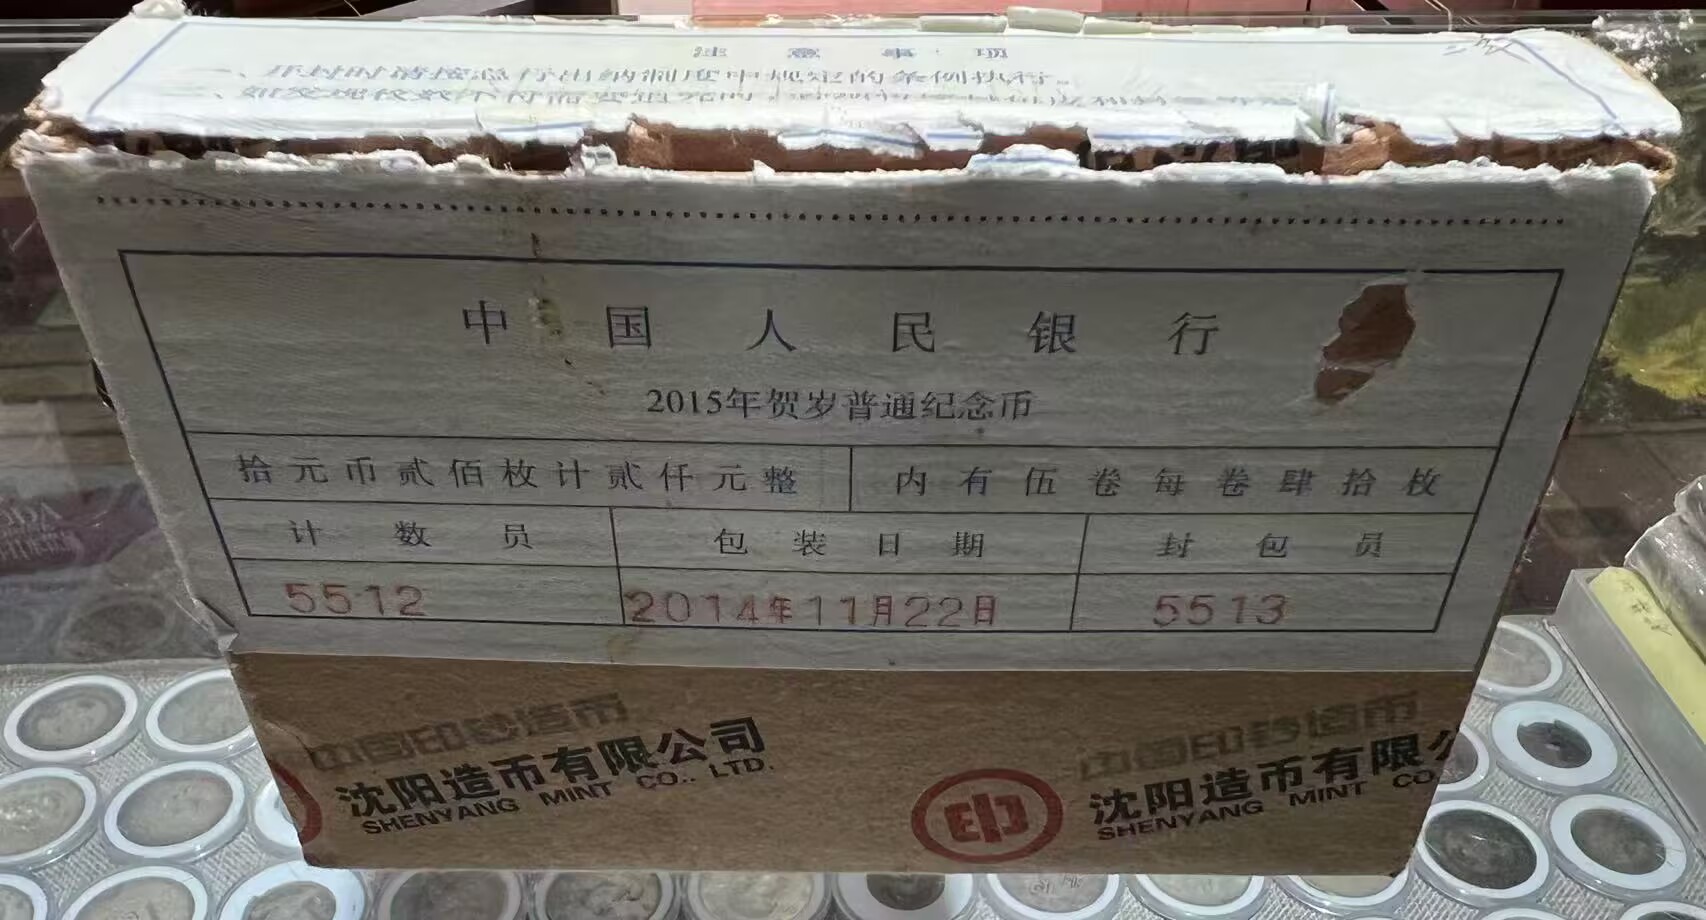 注意事项
一、开封时请按总行出纳制度中规定的条例执行。
二、如发现枚数不符需要追究的，
中国人民银行
2015年贺岁普通纪念币
拾元币贰佰枚计贰仟元整 内有伍卷每卷肆拾枚
计数员 包装日期 封包员
5512 2014年11月22日 5513
中国印钞造币 中国印钞造币
沈阳造币有限公司 沈阳造币有限公
SHENYANG MINT CO., LTD. SHENYANG MINT CO